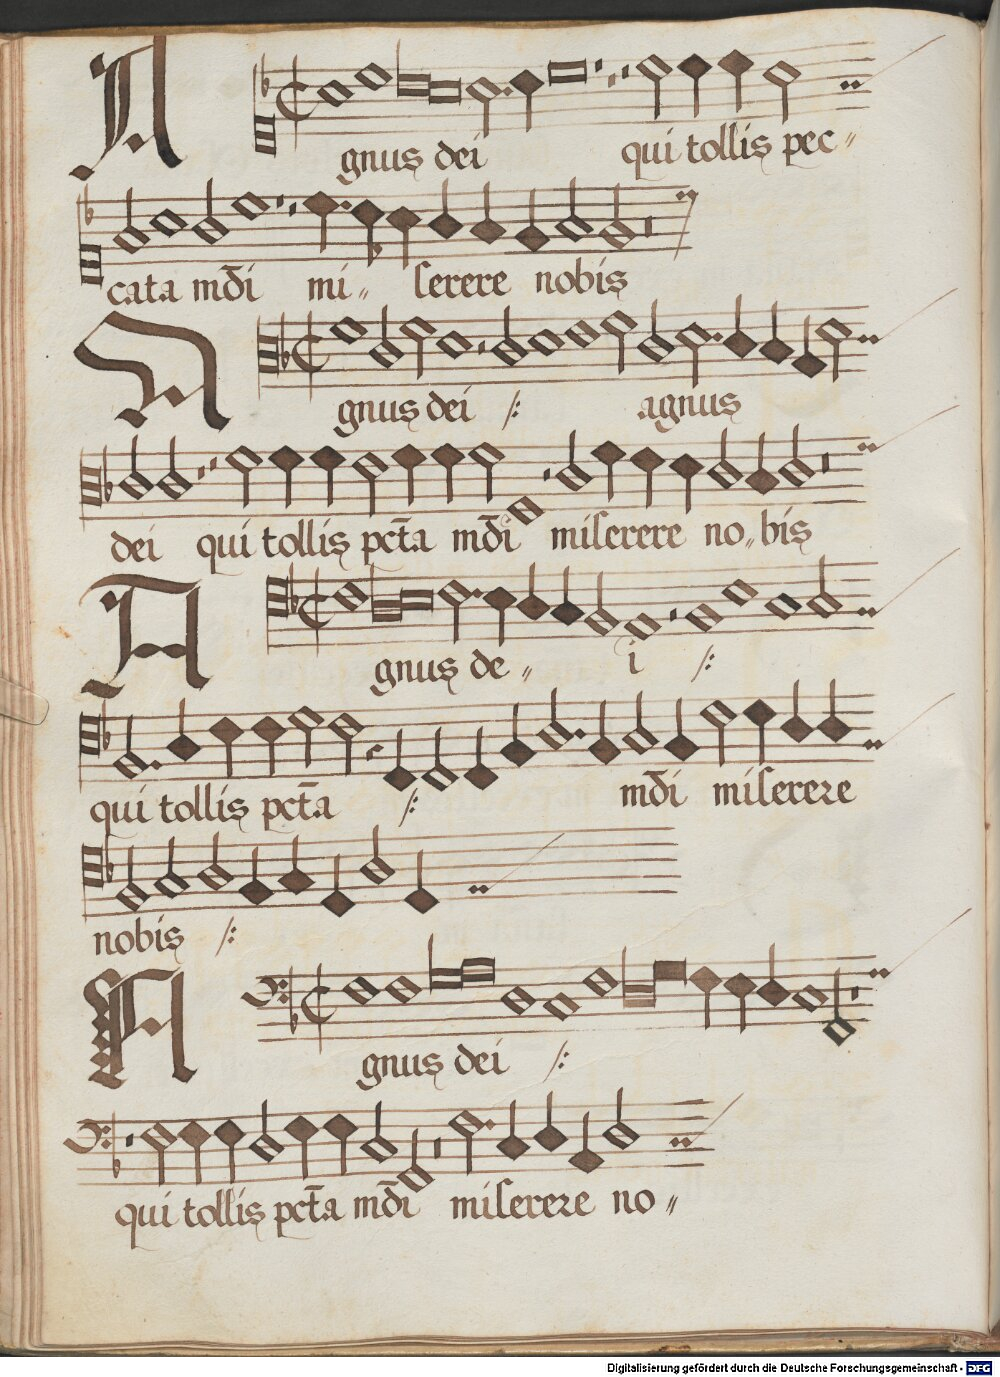 Agnus dei qui tollis pec〃
cata mđi mi〃 serere nobis
Agnus dei /: agnus
dei qui tollis pct̄a mđi miserere no〃bis
Agnus de〃 i /:
qui tollis pct̄a /: mđi miserere
nobis /:
Agnus dei /:
qui tollis pct̄a mđi miserere no〃
Digitalisierung gefördert durch die Deutsche Forschungsgemeinschaft - DFG